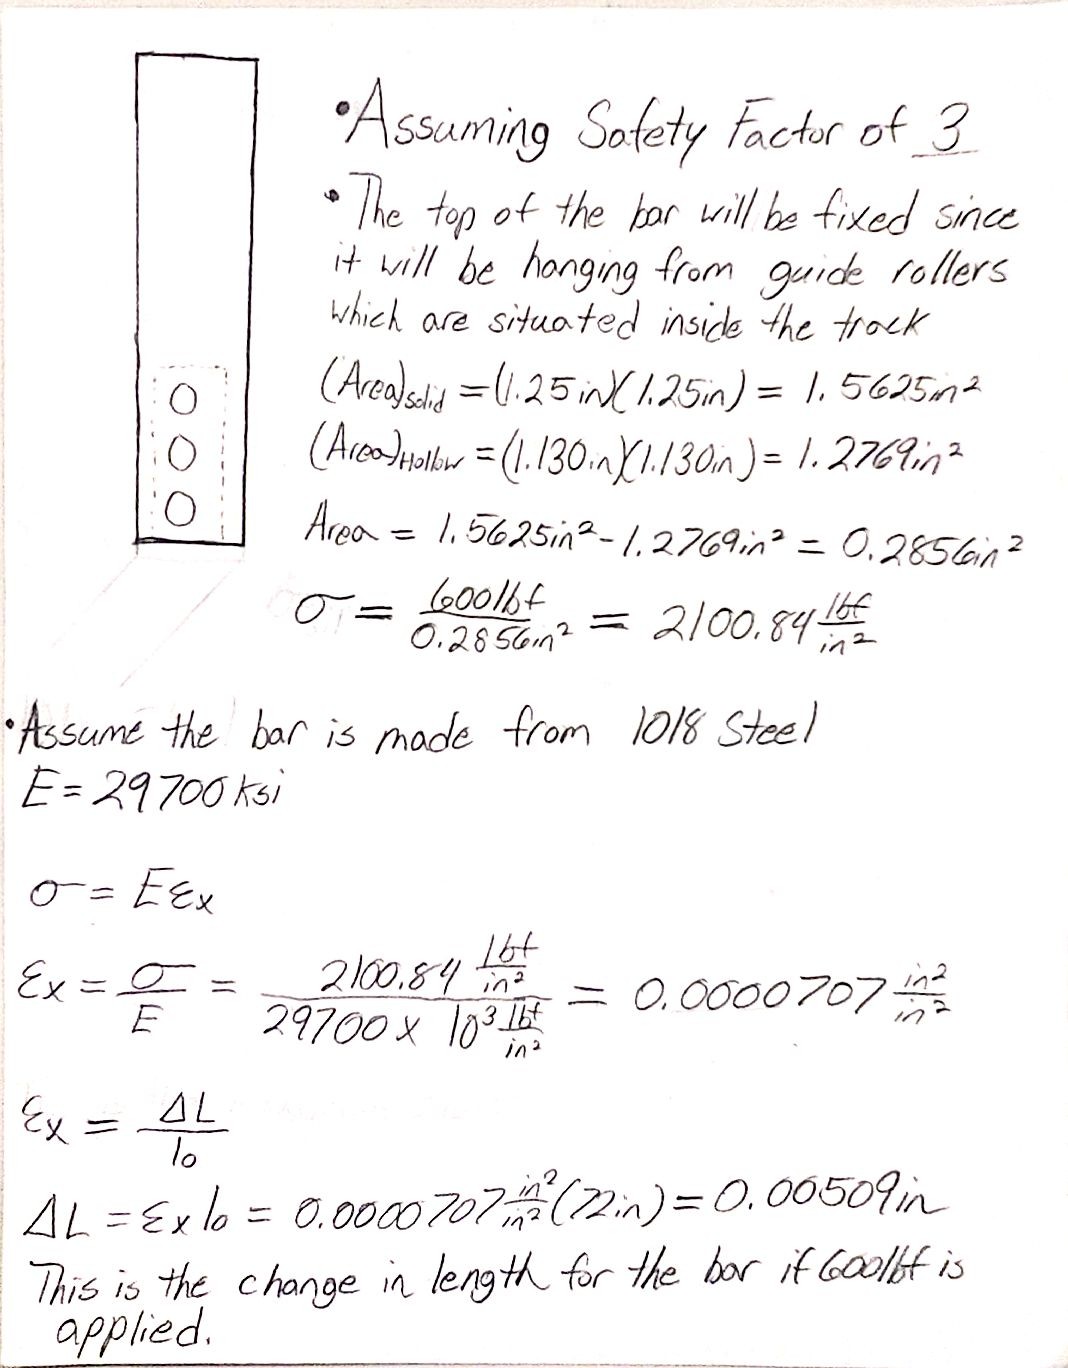 • Assuming Safety Factor of 3
• The top of the bar will be fixed since
it will be hanging from guide rollers
which are situated inside the track
(Area)solid = (1.25in)(1.25in) = 1.5625in²
(Area)Hollow = (1.130in)(1.130in) = 1.2769in²
Area = 1.5625in² - 1.2769in² = 0.2856in²
σ = 600lbf / 0.2856in² = 2100.84 lbf/in²
• Assume the bar is made from 1018 Steel
E = 29700 ksi
σ = Eεx
εx = σ/E = 2100.84 lbf/in² / 29700 x 10³ lbf/in² = 0.0000707 in²/in²
εx = ΔL/lo
ΔL = εx lo = 0.0000707 in²/in² (72in) = 0.00509in
This is the change in length for the bar if 600lbf is
applied.